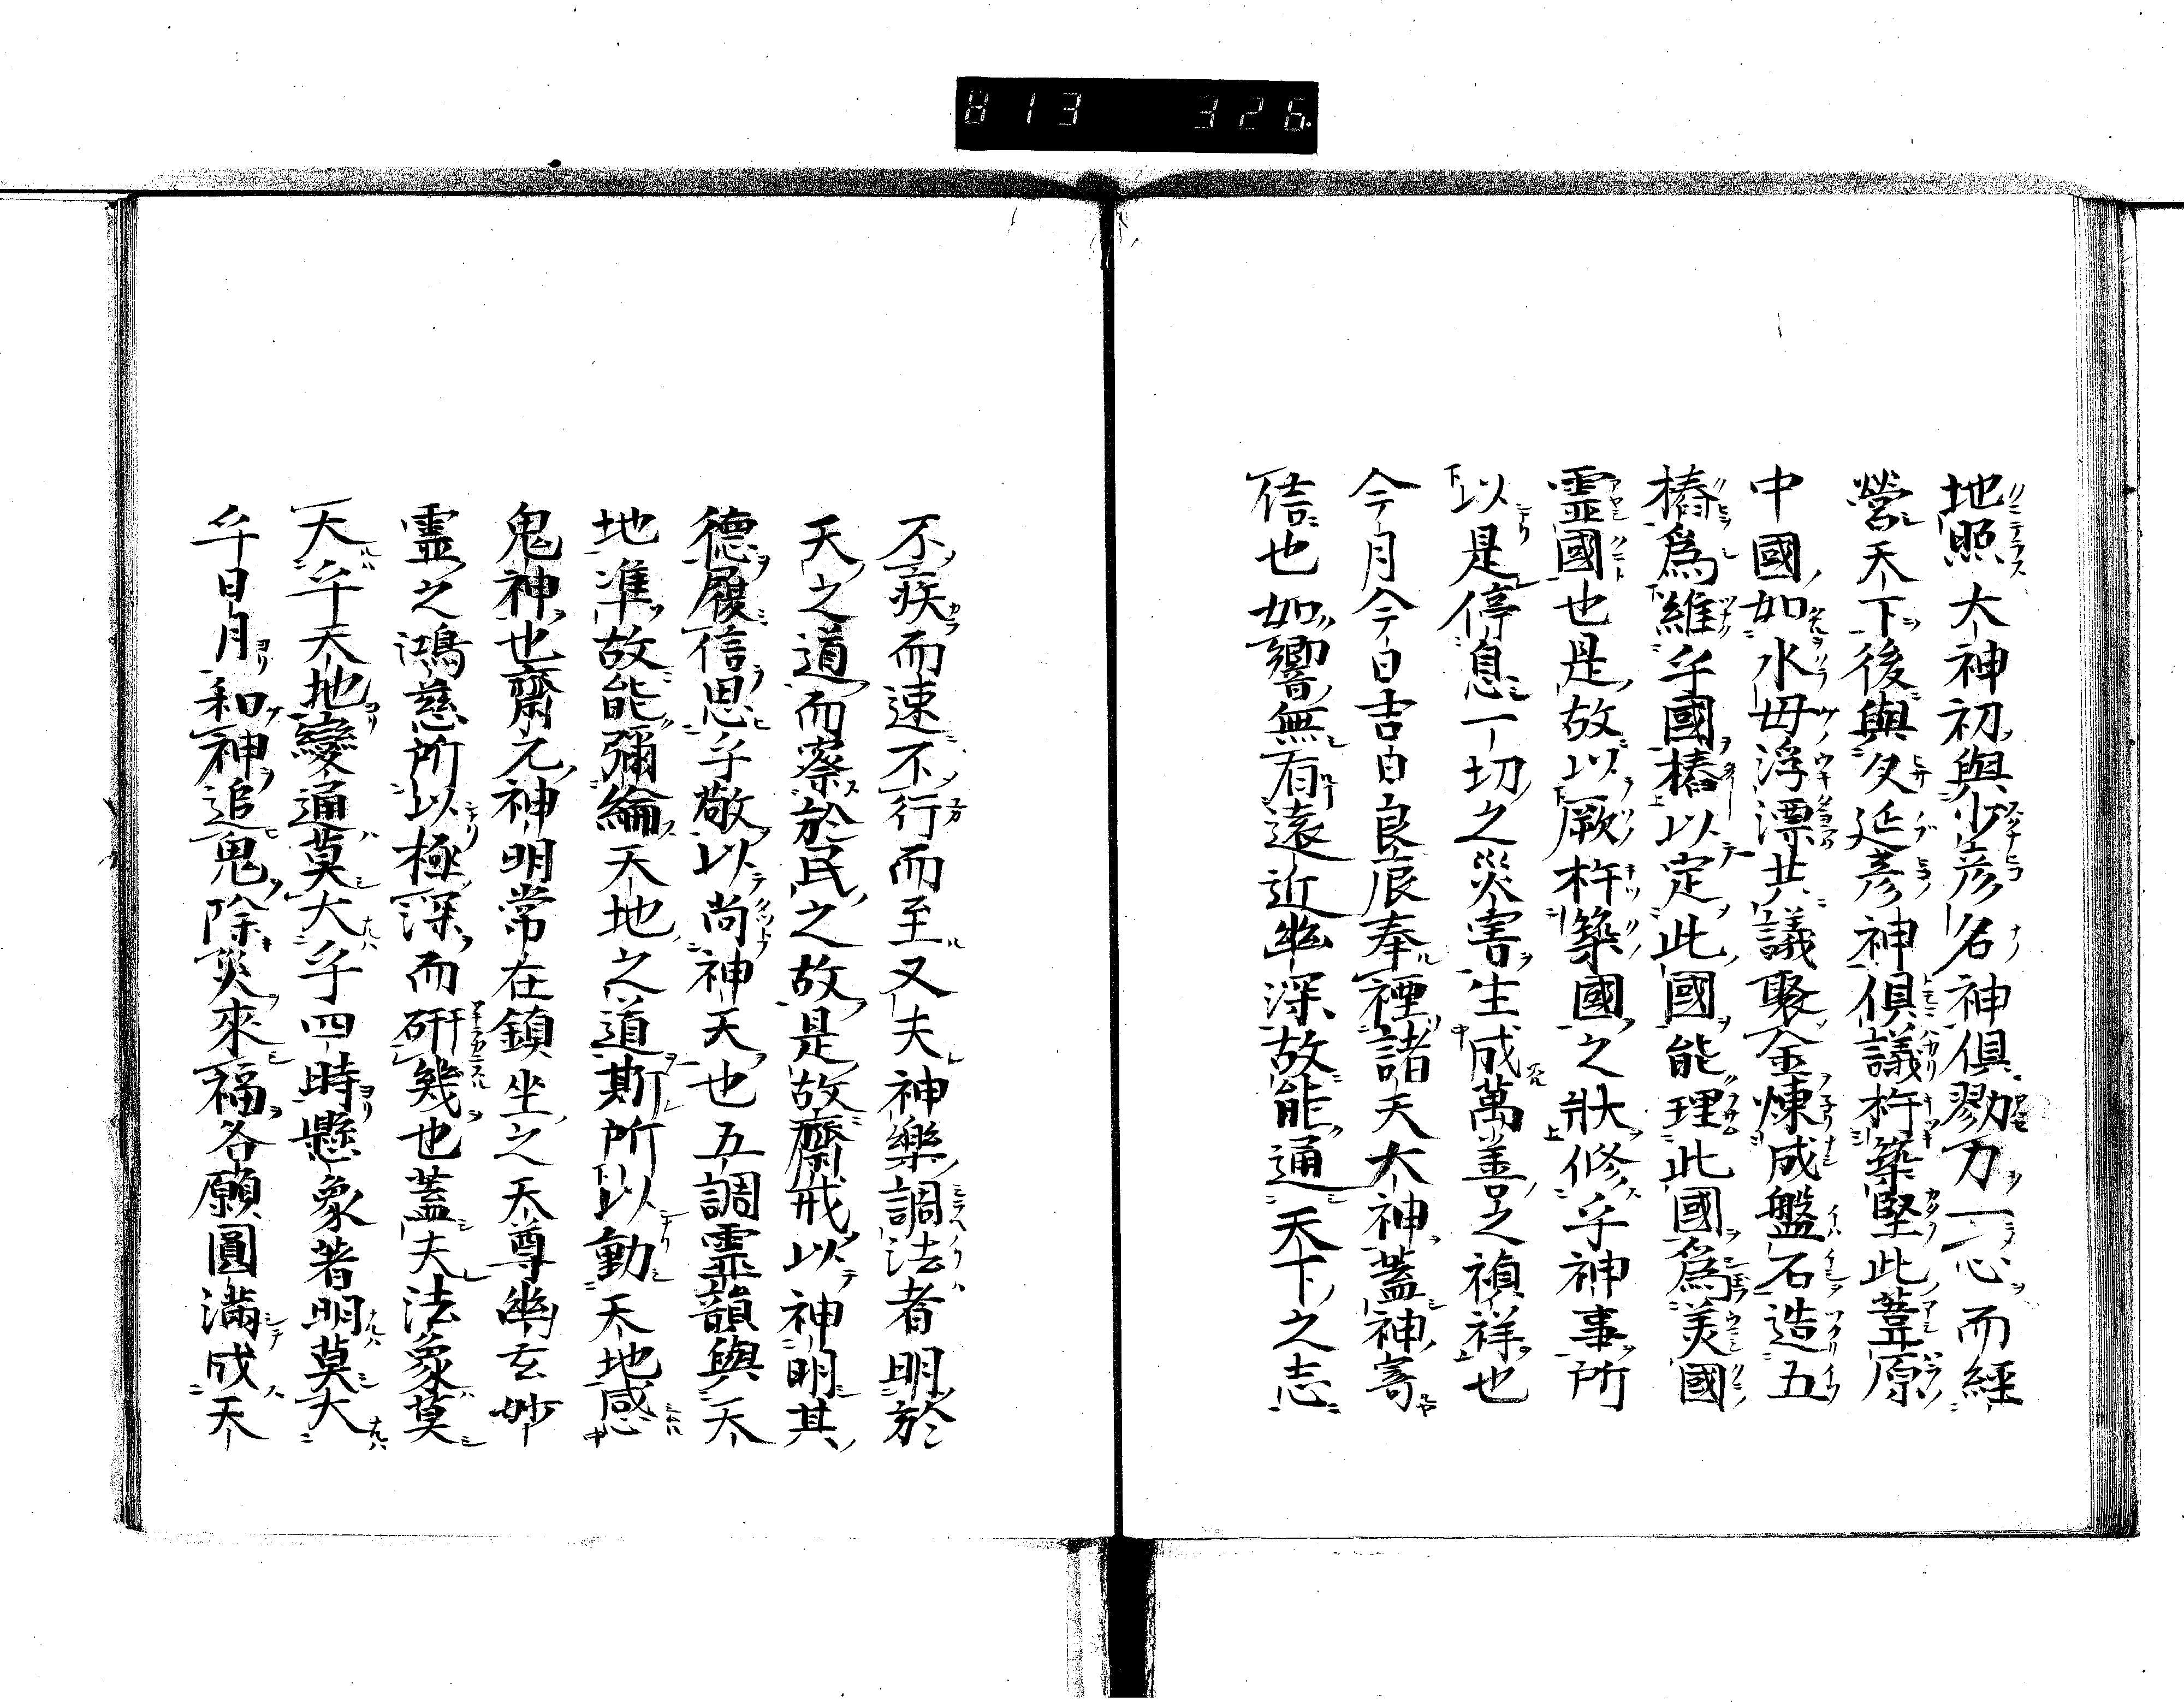 813 326
地照大神初與少彦名神俱勠力一心而經
營天下後與夕延彦神俱議杵築堅此葦原
中國如水母浮漂共議聚金煉成盤石造五
樁爲維乎國樁以定此國能理此國爲美國
霊國也是故以厥杵築國之狀修乎神事所
以是停息一切之災害生成萬善之禎祥也
今月今日吉日良辰奉禋諸天大神蓋神寄
信也如響無有遠近幽深故能通天下之志
不疾而速不行而至又夫神樂調法者明於
天之道而察於民之故是故齋戒以神明其
德履信思乎敬以尚神天也五調霊韻與天
地準故能彌綸天地之道斯所以動天地感
鬼神也齋元神明常在鎮坐之天尊幽玄妙
霊之鴻慈所以極深而研幾也蓋夫法象莫
大乎天地變通莫大乎四時懸象著明莫大
乎日月和神追鬼除災來福各願圓滿成天